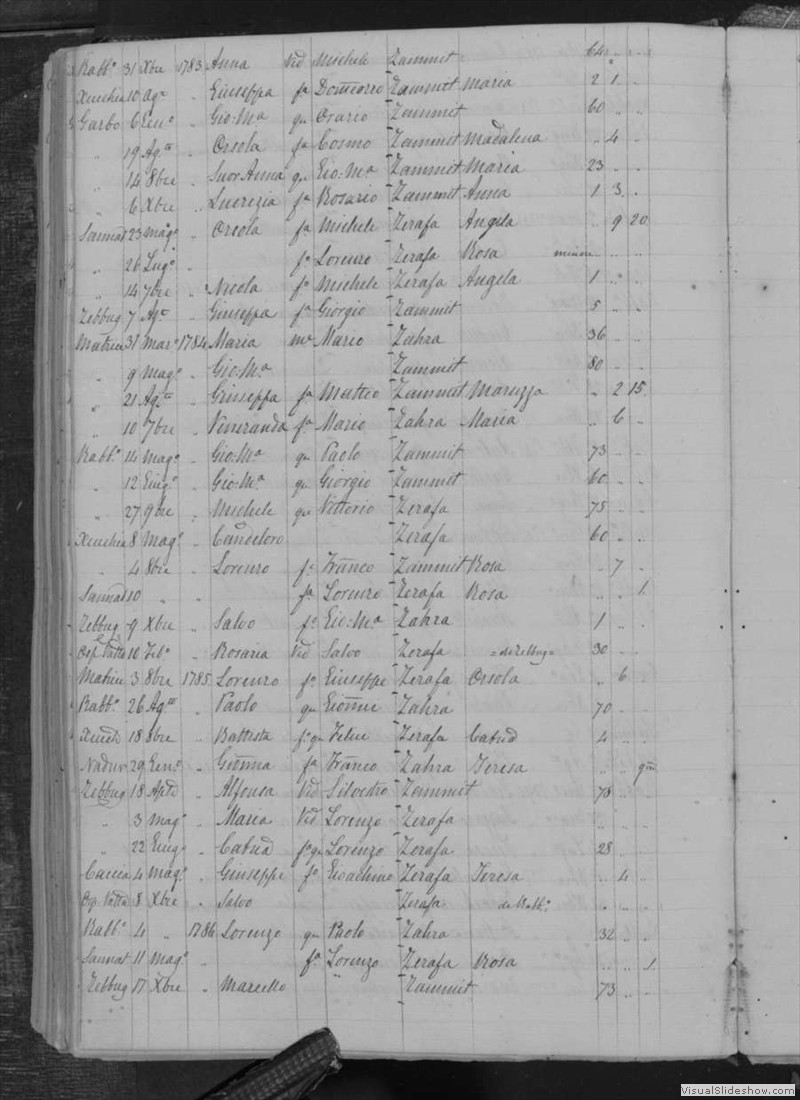 Rabb.º 31 Xbre 1783 Anna Vid Michele Zammit 64 .. ..
Xeuchia 10 Ag.º .. Giuseppa f.ª Domco Zammit Maria 2 1 ..
Garbo 6 Gen.º .. Gio: M.ª qu Orazio Zammit 60 .. ..
.. 19 Ag.to .. Orsola f.ª Cosmo Zammit Madalena .. 4 ..
.. 14 8bre .. Suor Anna qu Gio: M.ª Zammit Maria 23 .. ..
.. 6 Xbre .. Lucrezia f.ª Rosario Zammit Anna 1 3 ..
Sannat 23 mag.º .. Orsola f.ª Michele Zerafa Angela .. 9 20
.. 26 Lug.º f.º Lorenzo Zerafa Rosa minore .. ..
.. 14 7bre .. Nicola f.º Michele Zerafa Angela 1 .. ..
Zebbug 7 Ag.to .. Giuseppa f.ª Giorgio Zammit 5 .. ..
31 Mar.º 1784 Maria m.e Mario Zahra 36 .. ..
.. 9 mag.º .. Gio: M.ª Zammit 80 .. ..
.. 21 Ag.to .. Giuseppa f.ª Matteo Zammit Maruzza .. 2 15
.. 10 7bre .. Veneranda f.ª Mario Zahra Maria .. 6 ..
Rabb.º 14 mag.º .. Gio: M.ª qu Paolo Zammit 73 .. ..
.. 12 Giug.º .. Gio: M.ª qu Giorgio Zammit 60 .. ..
.. 27 9bre .. Michele qu Vittorio Zerafa 75 .. ..
Xeuchia 8 Mag.º .. Candeloro Zerafa 60 .. ..
.. 4 8bre .. Lorenzo f.º Franco Zammit Rosa .. 7 ..
Sannat 10 .. .. f.ª Lorenzo Zerafa Rosa .. .. 1
Zebbug 9 Xbre .. Salvo f.º Gio: M.ª Zahra 1 .. ..
10 Feb.º .. Rosaria Vid Salvo Zerafa = de Zebbug = 30 .. ..
3 8bre 1785 Lorenzo f.º Giuseppe Zerafa Orsola .. 6 ..
Rabb.º 26 Ag.to .. Paolo qu Gionne Zahra 70 .. ..
Xeuch 18 8bre .. Battista f.º qu Felice Zerafa Catad 4 .. ..
Nadur 29 Gen.º .. Gionna f.ª Franco Zahra Teresa .. ..
Zebbug 18 Aple .. Alfonsa Vid Silvestro Zammit 78 .. ..
.. 3 mag.º .. Maria Vid Lorenzo Zerafa .. .. ..
.. 22 Giug.º .. Catad f.ª qu Lorenzo Zerafa 28 .. ..
Caccia 4 mag.º .. Giuseppe f.º Gioachino Zerafa Teresa .. 4 ..
8 Xbre .. Salvo Zerafa de Rabb.º .. .. ..
Rabb.º 4 .. 1786 Lorenzo qu Paolo Zahra 32 .. ..
Sannat 11 mag.º .. f.ª Lorenzo Zerafa Rosa .. .. 1
Zebbug 17 Xbre .. Marcello Zammit 73 .. ..
VisualSlideshow.com